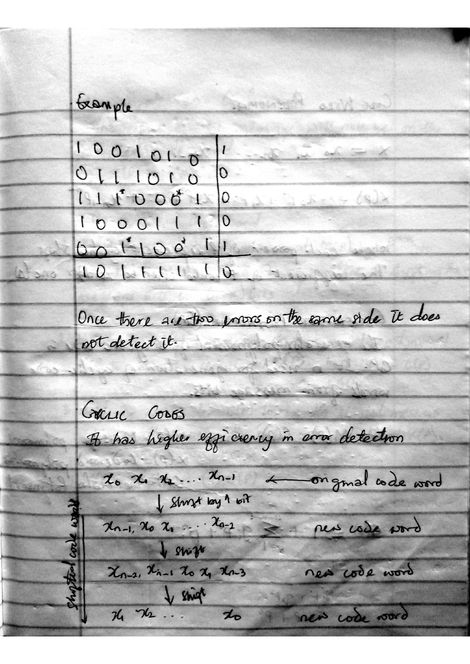 Example
1 0 0 1 0 1 0 | 1
0 1 1 1 0 1 0 | 0
1 1 1* 0 0 0* 1 | 0
1 0 0 0 1 1 1 | 0
0 0 1* 1 0 0* 1 | 1
1 0 1 1 1 1 1 | 0
Once there are two errors on the same side It does
not detect it.
CYCLIC CODES
It has higher efficiency in error detection
x0 x1 x2 .... xn-1 ← original code word
↓ Shift by 1 bit
xn-1, x0 x1 .... xn-2 new code word
↓ Shift
xn-2, xn-1 x0 x1 xn-3 new code word
↓ Shift
x1 x2 ... x0 new code word